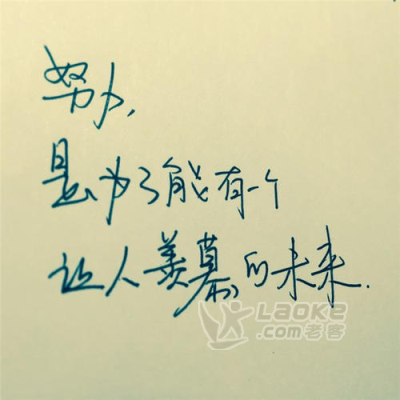 努力，
是为了能有一个
让人羡慕的未来.
LAOKE
.com老客